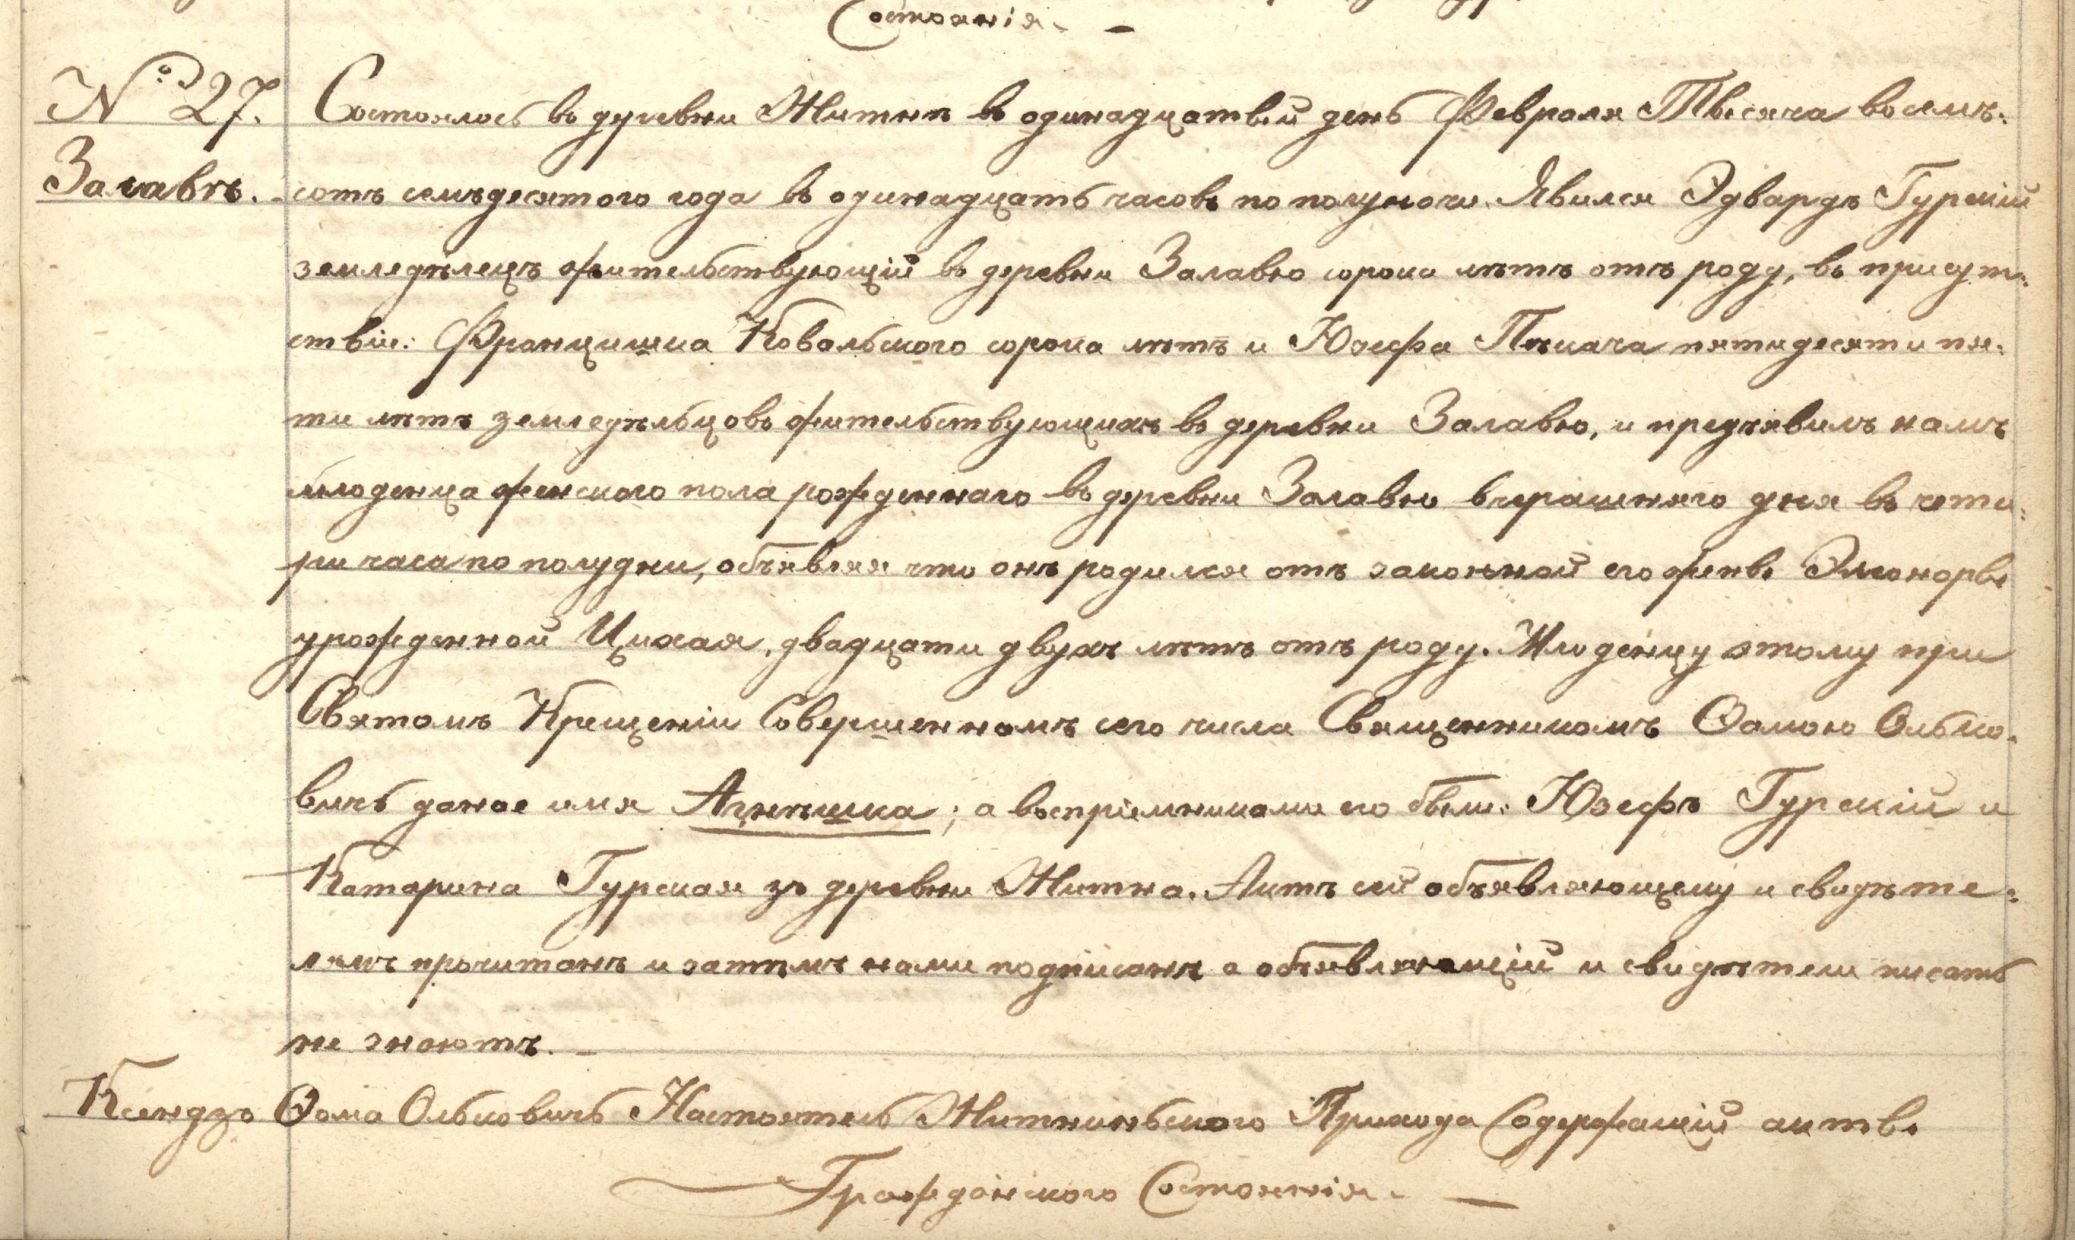 Состоянія. —
№ 27.
Залавъ.
Состоялось въ деревни Житнѣ въ одинадцатый день Февраля Тысяча восемъ-
сотъ семъдесятого года въ одинадцать часовъ по полуночи. Явился Эдвардъ Гурскій
земледѣлецъ жительствующій въ деревни Залавю сорока лѣтъ отъ роду, въ присут-
ствіи: Францишка Ковальского сорока лѣтъ и Юзефа Пѣкача пятидесяти пя-
ти лѣтъ земледѣльцовъ жительствующихъ въ деревни Залавю, и предъявилъ намъ
младенца женского пола рожденнаго въ деревни Залавю вчерашняго дня въ чети-
ри часа по полудни, объявляя что онъ родился отъ законной его жены Элеоноры
урожденной Цихая, двадцати двухъ лѣтъ отъ роду. Младенцу этому при
Святомъ Крещеніи Совершенномъ сего числа Священникомъ Ѳомою Олько-
вичъ даное имя Агнѣшка; а воспріемниками его были: Юзефъ Гурскій и
Катарина Гурская зъ деревни Житна. Актъ сей объявляющему и свидѣте-
лямъ прочитанъ и затѣмъ нами подписанъ а объявляющій и свидѣтели писать
не знаютъ. —
Ксендзъ Ѳома Ольковичъ Настоятель Житниньского Прихода Содержащій акты
Гражданского Состоянія. —